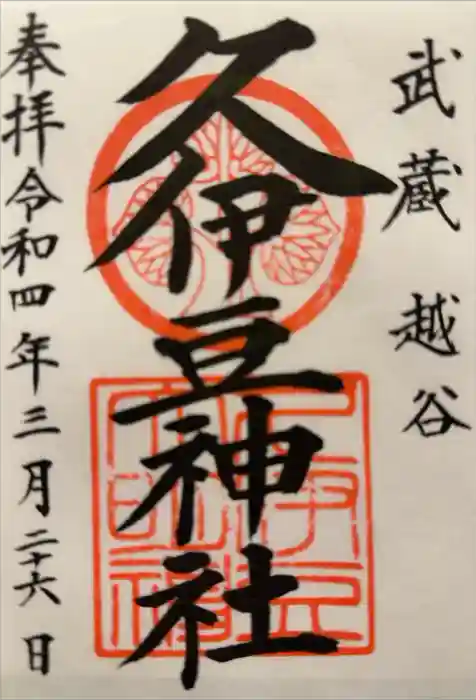 武蔵 越谷
久伊豆神社
奉拝令和四年三月二十六日